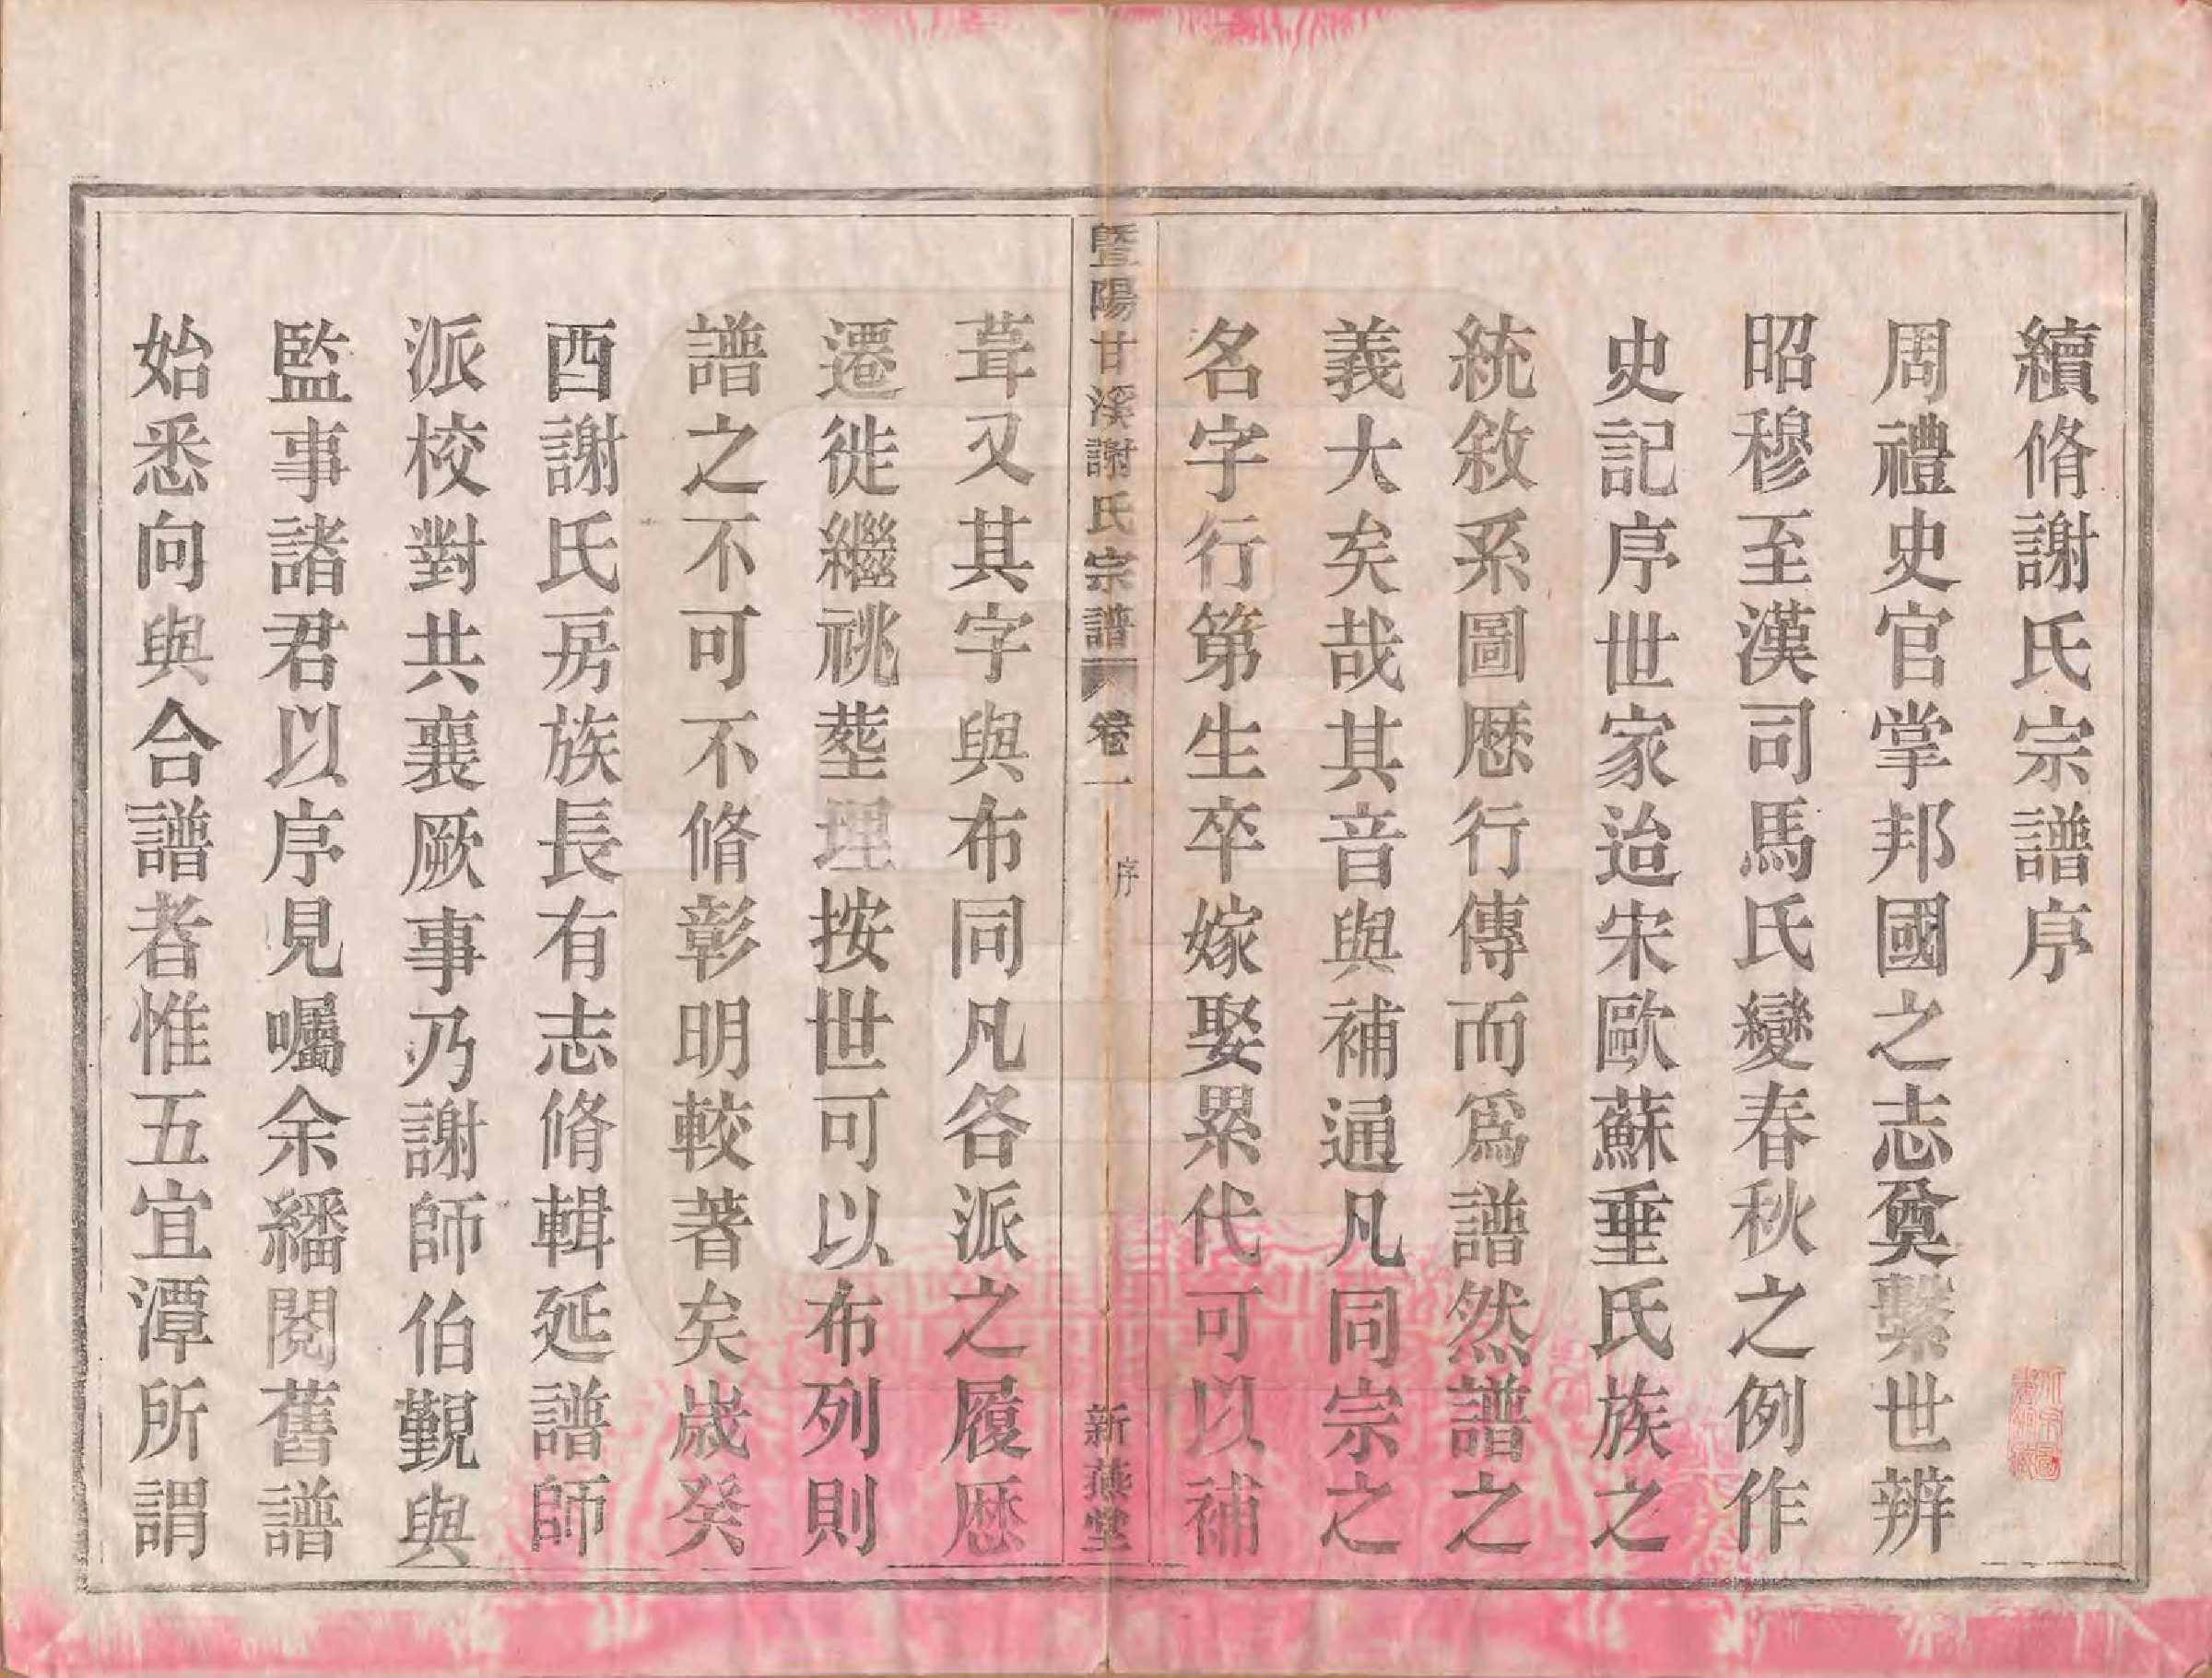 續脩謝氏宗譜序
周禮史官掌邦國之志奠繫世辨
昭穆至漢司馬氏變春秋之例作
史記序世家迨宋歐蘇垂氏族之
統敘系圖歷行傳而爲譜然譜之
義大矣哉其音與補通凡同宗之
名字行第生卒嫁娶累代可以補
暨陽甘溪謝氏宗譜 卷一 序 新燕堂
葺又其字與布同凡各派之履歷
遷徙繼祧塟埋按世可以布列則
譜之不可不脩彰明較著矣歲癸
酉謝氏房族長有志脩輯延譜師
派校對共襄厥事乃謝師伯觐與
監事諸君以序見囑余繙閱舊譜
始悉向與合譜者惟五宜潭所謂